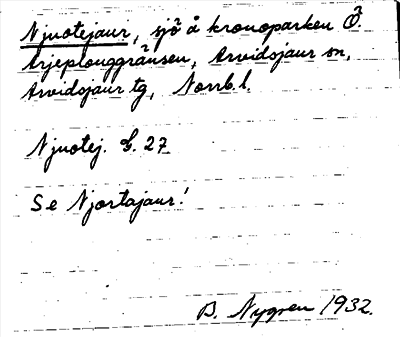 Njuotejaur, sjö å kronoparken Ö.
Arjeplouggränsen, Arvidsjaur sn,
Arvidsjaur tg, Norrb. l.
Njuotej. G. 27
Se Njortajaur!
B. Nygren 1932.